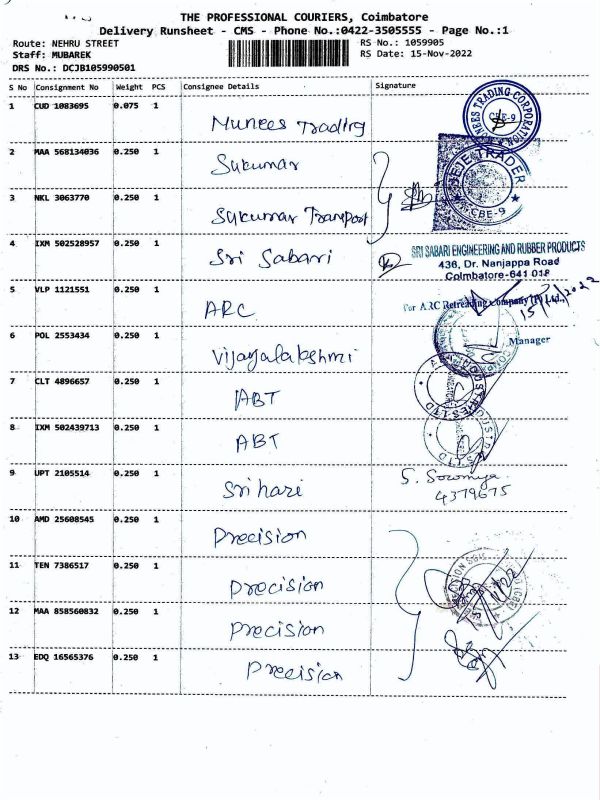 THE PROFESSIONAL COURIERS, Coimbatore
Delivery Runsheet - CMS - Phone No.:0422-3505555 - Page No.:1
Route: NEHRU STREET
RS No.: 1059905
Staff: MUBAREK
RS Date: 15-Nov-2022
DRS No.: DCJB105990501
S No Consignment No Weight PCS Consignee Details Signature
1 CUD 1083695 0.075 1 Munees Trading
NEES TRADING CORPORATION CBE-9
2 MAA 568134036 0.250 1 Sukumar
TRADER CBE-9
3 NKL 3063770 0.250 1 Sukumar Transport
4 IXM 502528957 0.250 1 Sri Sabari
SRI SABARI ENGINEERING AND RUBBER PRODUCTS
436, Dr. Nanjappa Road
Coimbatore-641 018
5 VLP 1121551 0.250 1 ARC
For ARC Retreading Company (P) Ltd.,
Manager
6 POL 2553434 0.250 1 Vijayalakshmi
7 CLT 4896657 0.250 1 ABT
8 IXM 502439713 0.250 1 ABT
9 UPT 2105514 0.250 1 Srihari
S. Sowmiya
4379675
10 AMD 25608545 0.250 1 Precision
11 TEN 7386517 0.250 1 Precision
12 MAA 858560832 0.250 1 Precision
13 EDQ 16565376 0.250 1 Precision